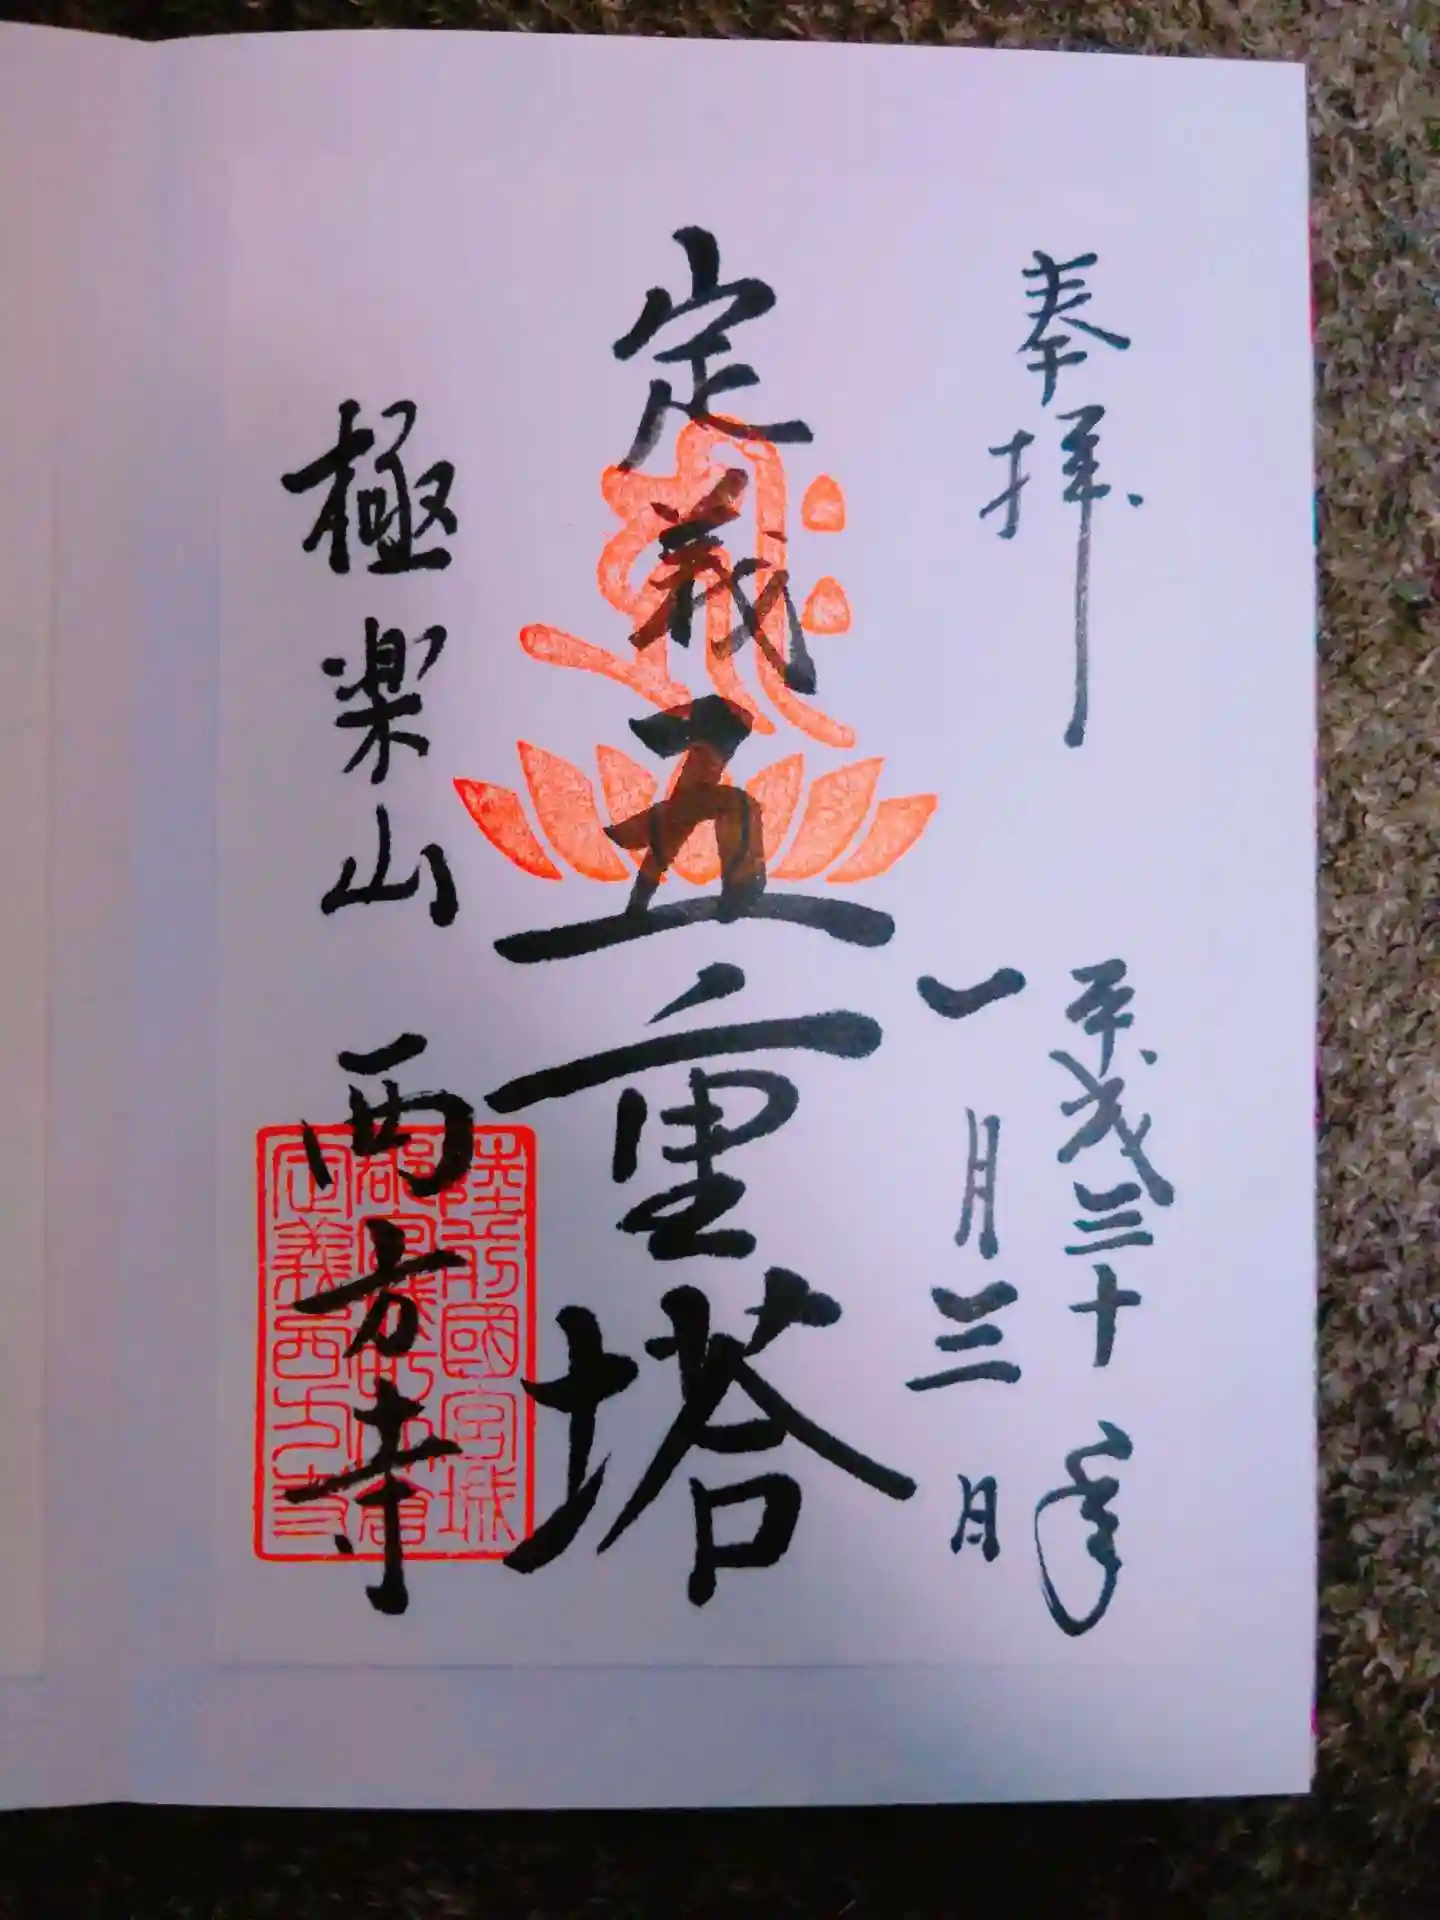 奉拝
平成三十年
一月三日
定義五重塔
極楽山 西方寺
陸前國宮城
定義西方寺